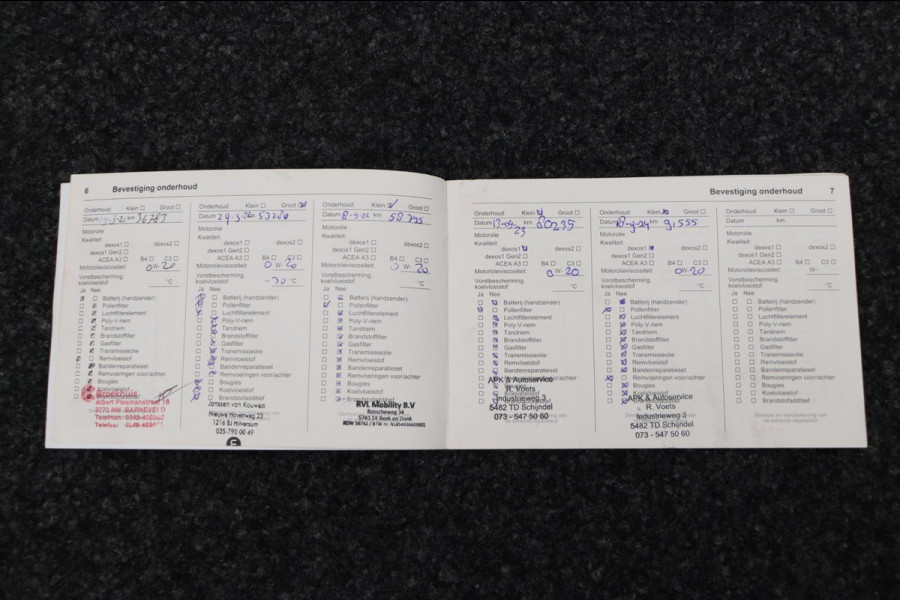 6 Bevestiging onderhoud
Onderhoud: Klein Groot
Datum km 36783
Motorolie
Kwaliteit:
dexos1 dexos2
dexos1 Gen2
ACEA A3 B4 C3
Motorolieviscositeit 0W-20
Vorstbescherming
koelvloeistof °C
Ja Nee
Batterij (handzender)
Pollenfilter
Luchtfilterelement
Poly-V-riem
Tandriem
Brandstoffilter
Gasfilter
Transmissieolie
Remvloeistof
Bandenreparatieset
Remvoeringen voor/achter
Bougies
Koelvloeistof
Brandstofadditief
Albert Plesmanstraat 18
3772 MN BARNEVELD
Onderhoud: Klein Groot
Datum 29-3- km
Motorolie
Kwaliteit:
dexos1 dexos2
dexos1 Gen2
ACEA A3 B4 C3
Motorolieviscositeit 0W-20
Vorstbescherming
koelvloeistof -30 °C
Ja Nee
Batterij (handzender)
Pollenfilter
Luchtfilterelement
Poly-V-riem
Tandriem
Brandstoffilter
Gasfilter
Transmissieolie
Remvloeistof
Bandenreparatieset
Remvoeringen voor/achter
Bougies
Koelvloeistof
Brandstofadditief
Janssen van Kouwen
Nieuwe Havenweg 22
1216 BJ Hilversum
035-790 00 49
Onderhoud: Klein Groot
Datum km
Motorolie
Kwaliteit:
dexos1 dexos2
dexos1 Gen2
ACEA A3 B4 C3
Motorolieviscositeit 0W-20
Vorstbescherming
koelvloeistof °C
Ja Nee
Batterij (handzender)
Pollenfilter
Luchtfilterelement
Poly-V-riem
Tandriem
Brandstoffilter
Gasfilter
Transmissieolie
Remvloeistof
Bandenreparatieset
Remvoeringen voor/achter
Bougies
Koelvloeistof
Brandstofadditief
RVL Mobility B.V
Bosscheweg 34
Bevestiging onderhoud 7
Onderhoud: Klein Groot
Datum 13-09- 23 km 80235
Motorolie
Kwaliteit:
dexos1 dexos2
dexos1 Gen2
ACEA A3 B4 C3
Motorolieviscositeit 0W-20
Vorstbescherming
koelvloeistof °C
Ja Nee
Batterij (handzender)
Pollenfilter
Luchtfilterelement
Poly-V-riem
Tandriem
Brandstoffilter
Gasfilter
Transmissieolie
Remvloeistof
Bandenreparatieset
Remvoeringen voor/achter
APK & Autoservice
R. Voets
Industrieweg 3
5482 TD Schijndel
073 - 547 50 60
Onderhoud: Klein Groot
Datum 18-9-24 km 91555
Motorolie
Kwaliteit:
dexos1 dexos2
dexos1 Gen2
ACEA A3 B4 C3
Motorolieviscositeit 0W-20
Vorstbescherming
koelvloeistof °C
Ja Nee
Batterij (handzender)
Pollenfilter
Luchtfilterelement
Poly-V-riem
Tandriem
Brandstoffilter
Gasfilter
Transmissieolie
Remvloeistof
Bandenreparatieset
Remvoeringen voor/achter
Bougies
APK & Autoservice
R. Voets
Industrieweg 3
5482 TD Schijndel
073 - 547 50 60
Onderhoud: Klein Groot
Datum km
Motorolie
Kwaliteit:
dexos1 dexos2
dexos1 Gen2
ACEA A3 B4 C3
Motorolieviscositeit W-
Vorstbescherming
koelvloeistof °C
Ja Nee
Batterij (handzender)
Pollenfilter
Luchtfilterelement
Poly-V-riem
Tandriem
Brandstoffilter
Gasfilter
Transmissieolie
Remvloeistof
Bandenreparatieset
Remvoeringen voor/achter
Bougies
Koelvloeistof
Brandstofadditief
Stempel en handtekening van
de erkende reparateur